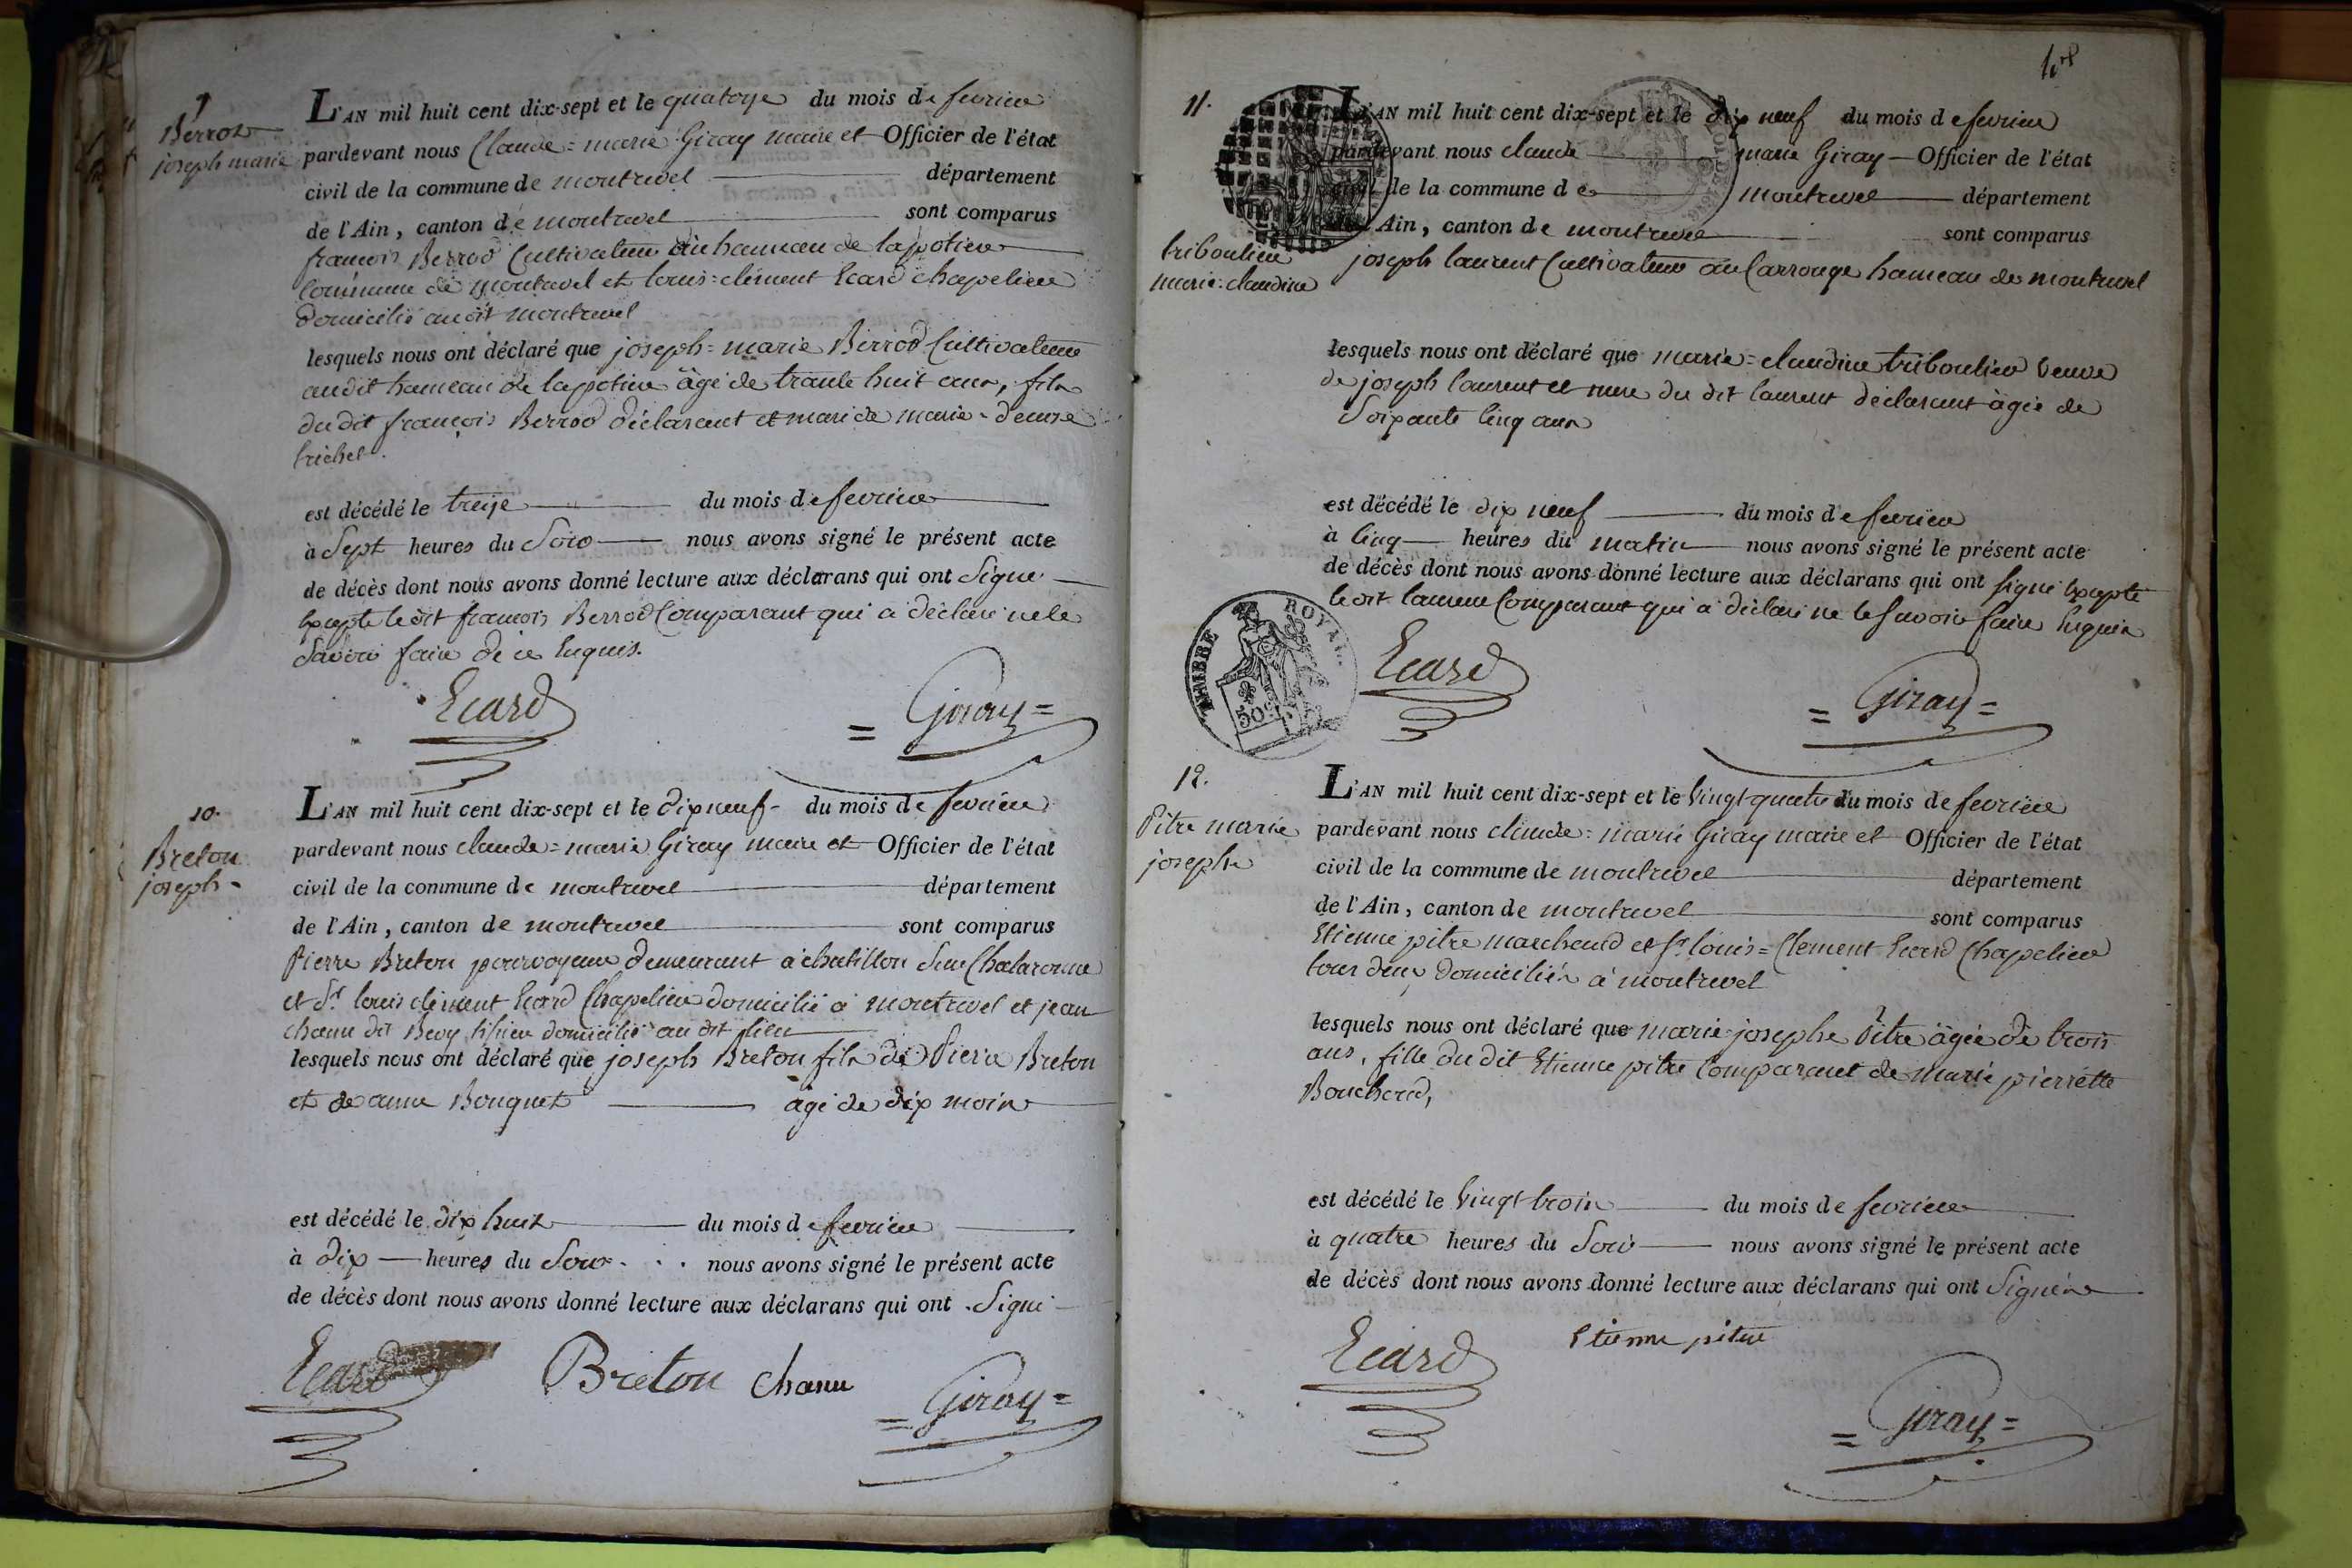 Berrod
joseph marie
L'AN mil huit cent dix-sept et le quatorze du mois de fevrier
pardevant nous Claude=marie Giray maire et Officier de l'état
civil de la commune de montrevel département
de l'Ain, canton de montrevel sont comparus
francois Berrod Cultivateur au hameau de lapotiere
Commune de montrevel et louis=clément Ecard chapelier
domicilié au dit montrevel
lesquels nous ont déclaré que joseph=marie Berrod Cultivateur
au dit hameau de lapotiere âgé de trante huit ans, fils
du dit françois Berrod déclarant et mari de marie=denise
trichet.
est décédé le treize du mois de fevrier
à Sept heures du Soir nous avons signé le présent acte
de décès dont nous avons donné lecture aux déclarans qui ont Signé
Excepté le dit francois Berrod Comparant qui a déclaré ne le
Savoir faire de ce Enquis.
Ecard
= Giray =
10.
Breton
joseph-
L'AN mil huit cent dix-sept et le dix neuf- du mois de fevrier
pardevant nous claude=marie Giray maire et Officier de l'état
civil de la commune de montrevel département
de l'Ain, canton de montrevel sont comparus
Pierre Breton pourvoyeur demeurant à chatillon Sur Chalaronne
et Sr. louis clément Ecard Chapelier domicilié à montrevel et jean
chanu dit domicilié au dit lieu
lesquels nous ont déclaré que joseph Breton fils de Pierre Breton
et de anne Bouquet âgé de dix mois
est décédé le dix huit du mois de fevrier
à dix heures du Soir . . . nous avons signé le présent acte
de décès dont nous avons donné lecture aux déclarans qui ont . Signé
Ecard Breton chanu
= Giray =
11.
triboulier
marie=claudine
L'AN mil huit cent dix-sept et le dix neuf du mois de fevrier
pardevant nous claude marie Giray Officier de l'état
civil de la commune de montrevel département
de l'Ain, canton de montrevel sont comparus
joseph laurent Cultivateur au Carrouge hameau de montrevel
lesquels nous ont déclaré que marie=claudine triboulier veuve
de joseph laurent et mere du dit laurent déclarant âgée de
Soixante Cinq ans
est décédé le dix neuf du mois de fevrier
à Cinq heures du matin nous avons signé le présent acte
de décès dont nous avons donné lecture aux déclarans qui ont signé Excepté
le dit laurent Comparant qui a déclaré ne le savoir faire Enquis
TIMBRE ROYAL.
50
Ecard
= Giray =
12.
Pitre marie
josephe
L'AN mil huit cent dix-sept et le Vingt quatre du mois de fevrier
pardevant nous claude=marie Giray maire et Officier de l'état
civil de la commune de montrevel département
de l'Ain, canton de montrevel sont comparus
Etienne pitre marchand et Sr. louis=Clement Ecard Chapelier
tous deux domiciliés à montrevel
lesquels nous ont déclaré que marie josephe Pitre âgée de trois
ans, fille du dit Etienne pitre Comparant de marie pierrette
Bouchard,
est décédé le Vingt trois du mois de fevrier
à quatre heures du Soir nous avons signé le présent acte
de décès dont nous avons donné lecture aux déclarans qui ont Signés
Ecard Etienne pitre
= Giray =